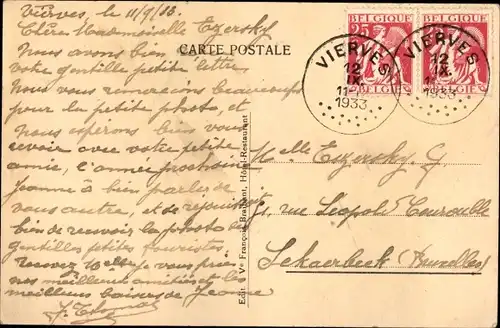 Vierves le 11/9/33.
Chère Mademoiselle Ezersky
Nous avons bien
votre gentille petite lettre
Nous vous remercions beaucoup
pour la petite photo, et
nous espérons bien vous
revoir avec votre petite
amie, l'année prochaine
Jeanne à bien parler de
vous autre, et de
bien de revoir la photo des
gentilles petites touristes.
recevez Melle je vous prie
nos meilleurs amitiés et les
meilleurs baisers de Jeanne
CARTE POSTALE
Edit. Vve François Brabant, Hôtel-Restaurant
BELGIQUE
25
BELGIE
BELGIQUE
BELGIE
VIERVES
12
IX
11
1933
VIERVES
12
IX
1933
Melle Ezersky. G
rue Léopold Courouble
Schaerbeek (Bruxelles)